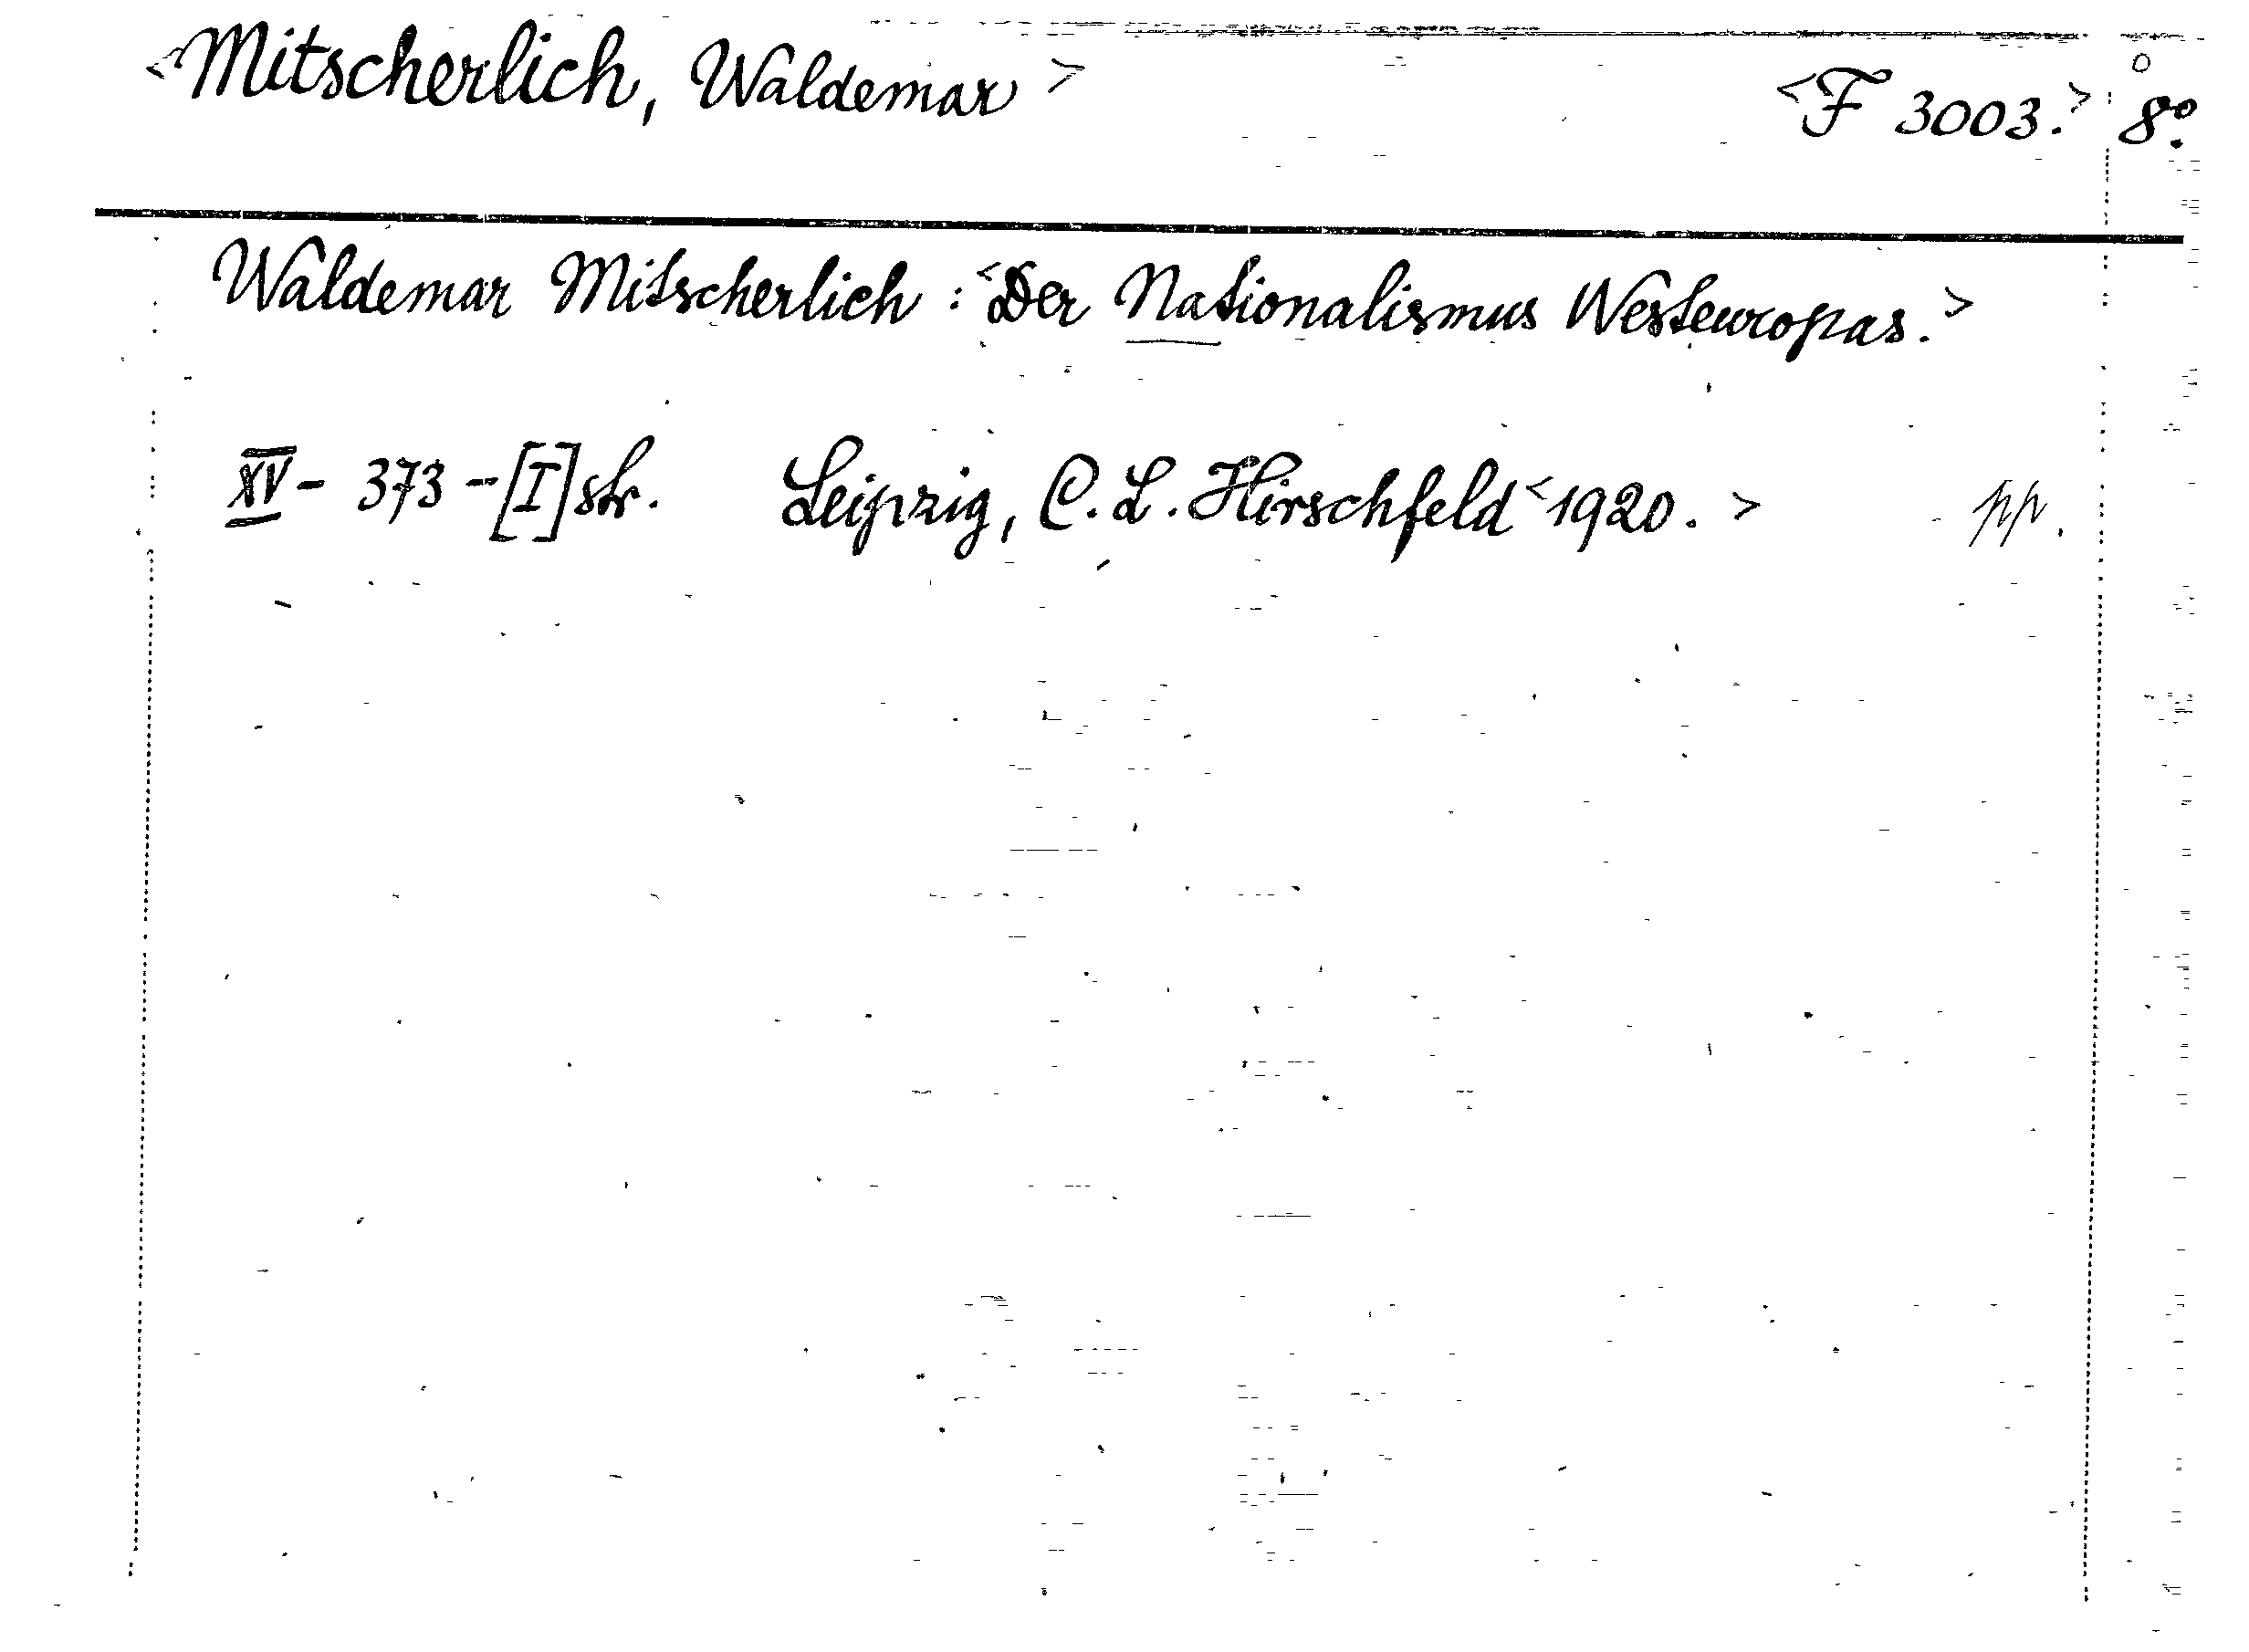 <Mitscherlich, Waldemar> <F 3003.> 8°.
Waldemar Mitscherlich : <Der Nationalismus Westeuropas.>
XV - 373 - [I] str. Leipzig, C. L. Hirschfeld <1920.> pp.